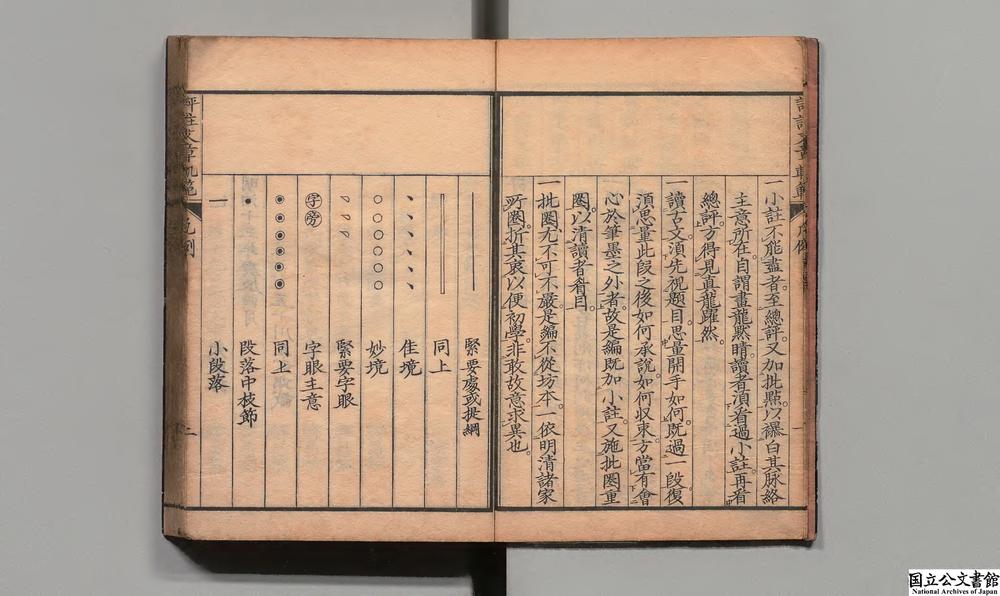 一小註不能盡者至總評又加批點以襮白其脉絡
主意所在自謂畫龍㸃睛讀者須看過小註再看
總評方得見真龍躍然
讀古文須先視題目思量開手如何既過一段復
須思量此段之後如何承說如何收束方當有會
心於筆墨之外者故是編既加小註又施批圈重
圈以清讀者眷目
一批圈尤不可不嚴是編不從坊本一依明清諸家
所圈折其衷以便初學非敢故意求異也
緊要處或提綱
同上
、、、、、 佳境
○○○○○ 妙境
緊要字眼
字旁 字眼主意
◉◉◉◉◉◉ 同上
• 段落中枝節
一 小段落
評註文章軌範 凡例 二
国立公文書館
National Archives of Japan